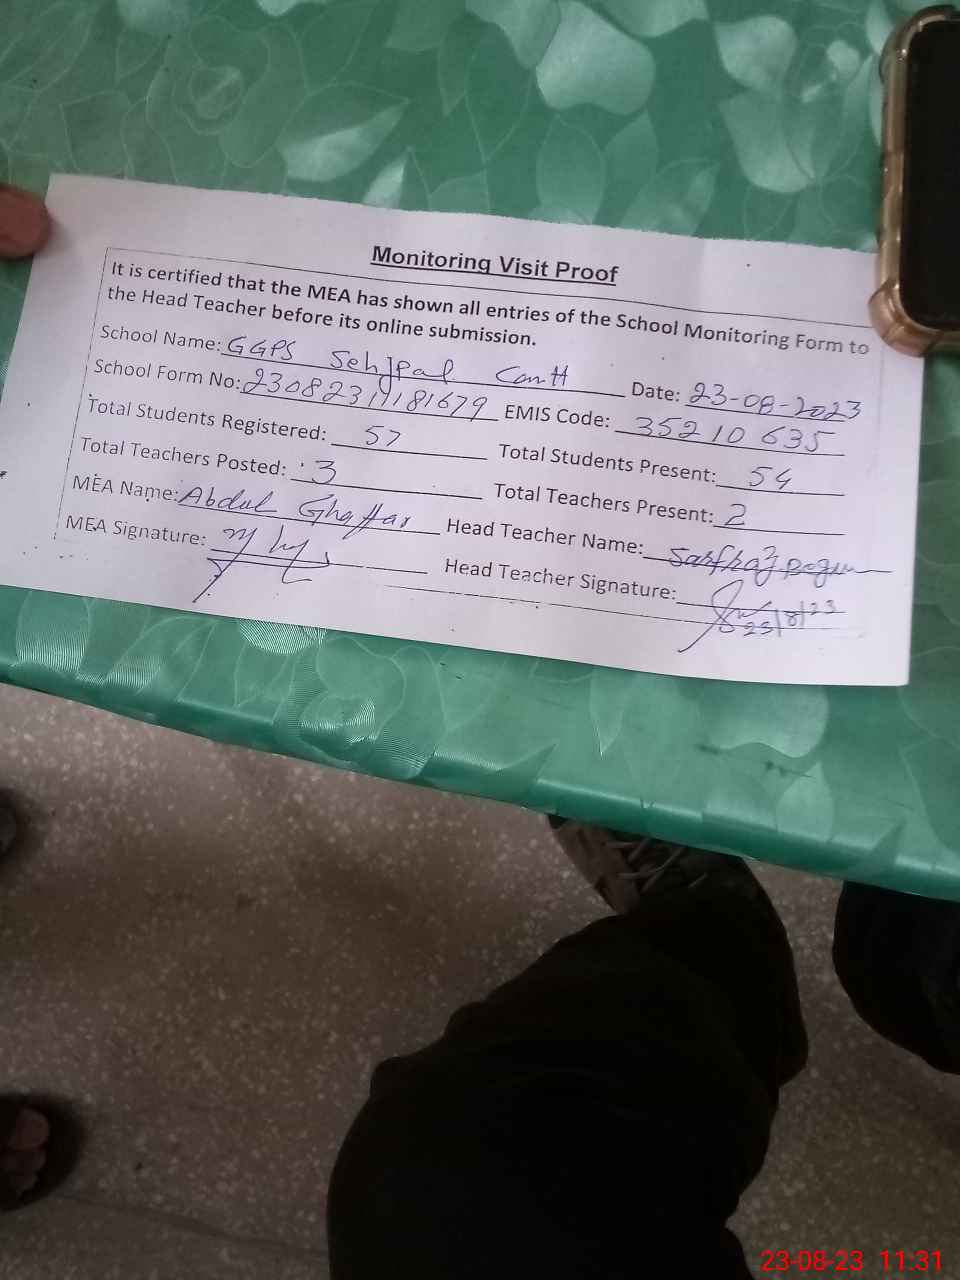 Monitoring Visit Proof
It is certified that the MEA has shown all entries of the School Monitoring Form to
the Head Teacher before its online submission.
School Name: GGPS Sehjpal Cantt Date: 23-08-2023
School Form No: EMIS Code: 35210635
Total Students Registered: 57 Total Students Present: 54
Total Teachers Posted: 3 Total Teachers Present: 2
MEA Name: Abdul Ghaffar Head Teacher Name: Sarfraz Begum
MEA Signature: Head Teacher Signature:
23/8/23
23-08-23 11:31